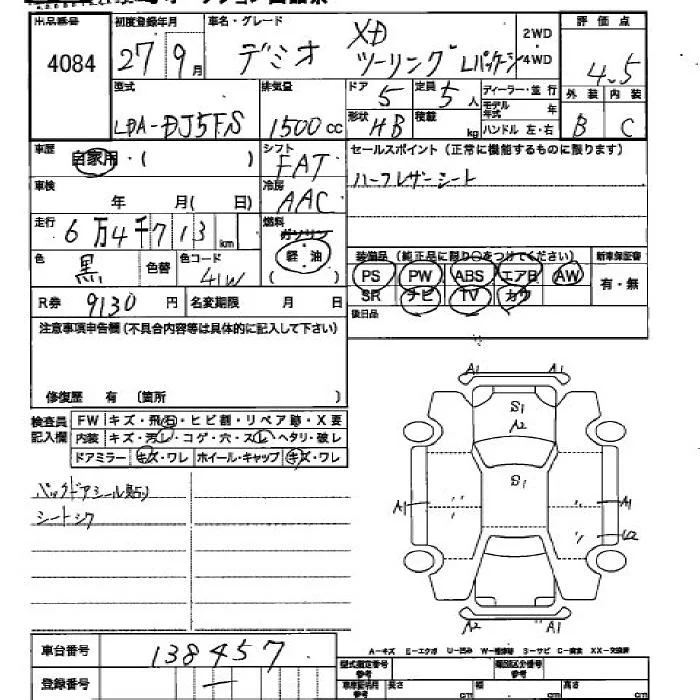 出品番号 初度登録年月 車名・グレード 2WD 評価点
4084 27年9月 デミオ XD ツーリング Lパッケージ 4WD 4.5
型式 排気量 ドア 5 定員 5人 ディーラー・並行 外装 内装
モデル年式 年
LDA-DJ5FS 1500cc 形状 HB 積載 kg ハンドル 左・右 B C
車歴 自家用・( ) シフト FAT セールスポイント(正常に機能するものに限ります)
車検 年 月( 日) 冷房 AAC ハーフレザーシート
走行 6万4千713km 燃料 ガソリン 軽油
色 黒 色替 色コード 41W 装備品(純正品に限り○をつけてください) 新車保証書
PS PW ABS エアB AW 有・無
SR ナビ TV カワ
R券 9130円 名変期限 月 日 後日品
注意事項申告欄(不具合内容等は具体的に記入して下さい)
修復歴 有 (箇所 )
検査員記入欄 FW キズ・飛石・ヒビ割・リペア跡・X要
内装 キズ・汚レ・コゲ・穴・スレ・ヘタリ・破レ
ドアミラー キズ・ワレ ホイール・キャップ キズ・ワレ
バックドアシール貼り
シートシワ
A1 A1
S1
A2
S1
A1 A1
U2
A2 A1
A-キズ E-エクボ U-凹み W-補修跡 S-サビ C-腐食 XX-交換済
車台番号 138457 型式指定番号 参考 類別区分番号 参考
登録番号 車庫証明用 参考 長さ cm 幅 cm 高さ cm